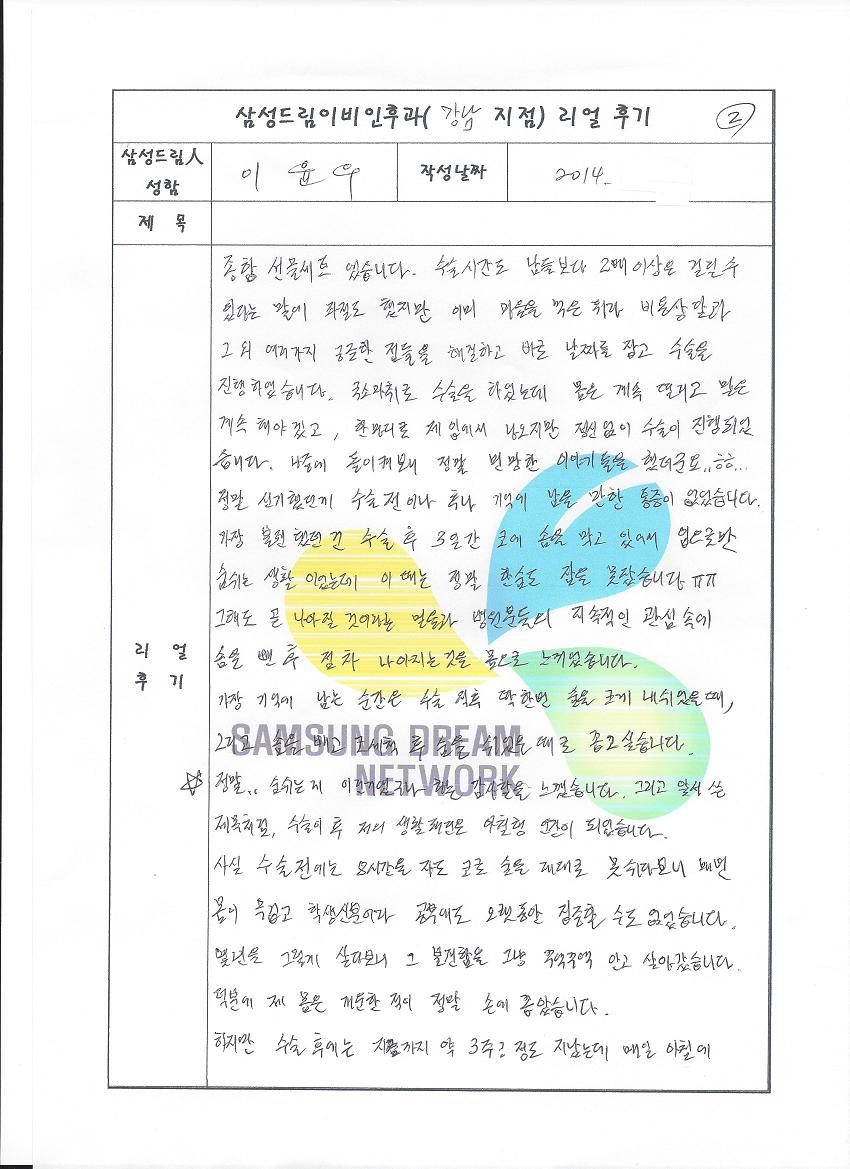 삼성드림이비인후과( 강남 지점) 리얼 후기 ②
삼성드림人 성함 이 윤 우 작성날짜 2014.
제 목
종합 선물세트 였습니다. 수술시간도 남들보다 2배이상은 걸릴수
있다는 말에 좌절도 했지만 이미 마음을 먹은 뒤라 비용상담과
그 외 여러가지 궁금한 점들을 해결하고 바로 날짜를 잡고 수술을
진행하였습니다. 국소마취로 수술을 하였는데 몸은 계속 떨리고 말은
계속 해야겠고, 한마디로 제 입에서 나오지만 정신없이 수술이 진행되었
습니다. 나중에 돌이켜보니 정말 민망한 이야기들을 했더군요..ㅎㅎ...
정말 신기했던게 수술 전이나 후나 기억에 남을 만한 통증이 없었습니다.
가장 불편했던 건 수술 후 3일간 코에 솜을 막고 있어서 입으로만
숨쉬는 생활이었는데 이 때는 정말 한숨도 잠을 못잤습니다 ㅠㅠ
그래도 곧 나아질 것이라는 믿음과 병원분들의 지속적인 관심 속에
솜을 뺀 후 점차 나아지는것을 몸으로 느끼었습니다.
가장 기억에 남는 순간은 수술 직후 딱 한번 숨을 크게 내쉬었을때,
그리고 솜을 빼고 코세척 후 숨을 쉬었을 때로 꼽고싶습니다.
리 얼
후 기
SAMSUNG DREAM
NETWORK
☆ 정말.. 숨쉬는게 이런거였구나 하는 감사함을 느꼈습니다. 그리고 앞서 쓴
제목처럼, 수술이후 저의 생활패턴은 아침형 인간이 되었습니다.
사실 수술전에는 8시간을 자도 코로 숨을 제대로 못쉬다보니 매번
몸이 무겁고 학생신분이다 공부에도 오랫동안 집중할 수도 없었습니다.
몇년을 그렇게 살다보니 그 불편함을 그냥 꾸역꾸역 안고 살아갔습니다.
덕분에 제 몸은 개운한 적이 정말 손에 꼽았습니다.
하지만 수술 후에는 지금까지 약 3주 정도 지났는데 매일 아침에